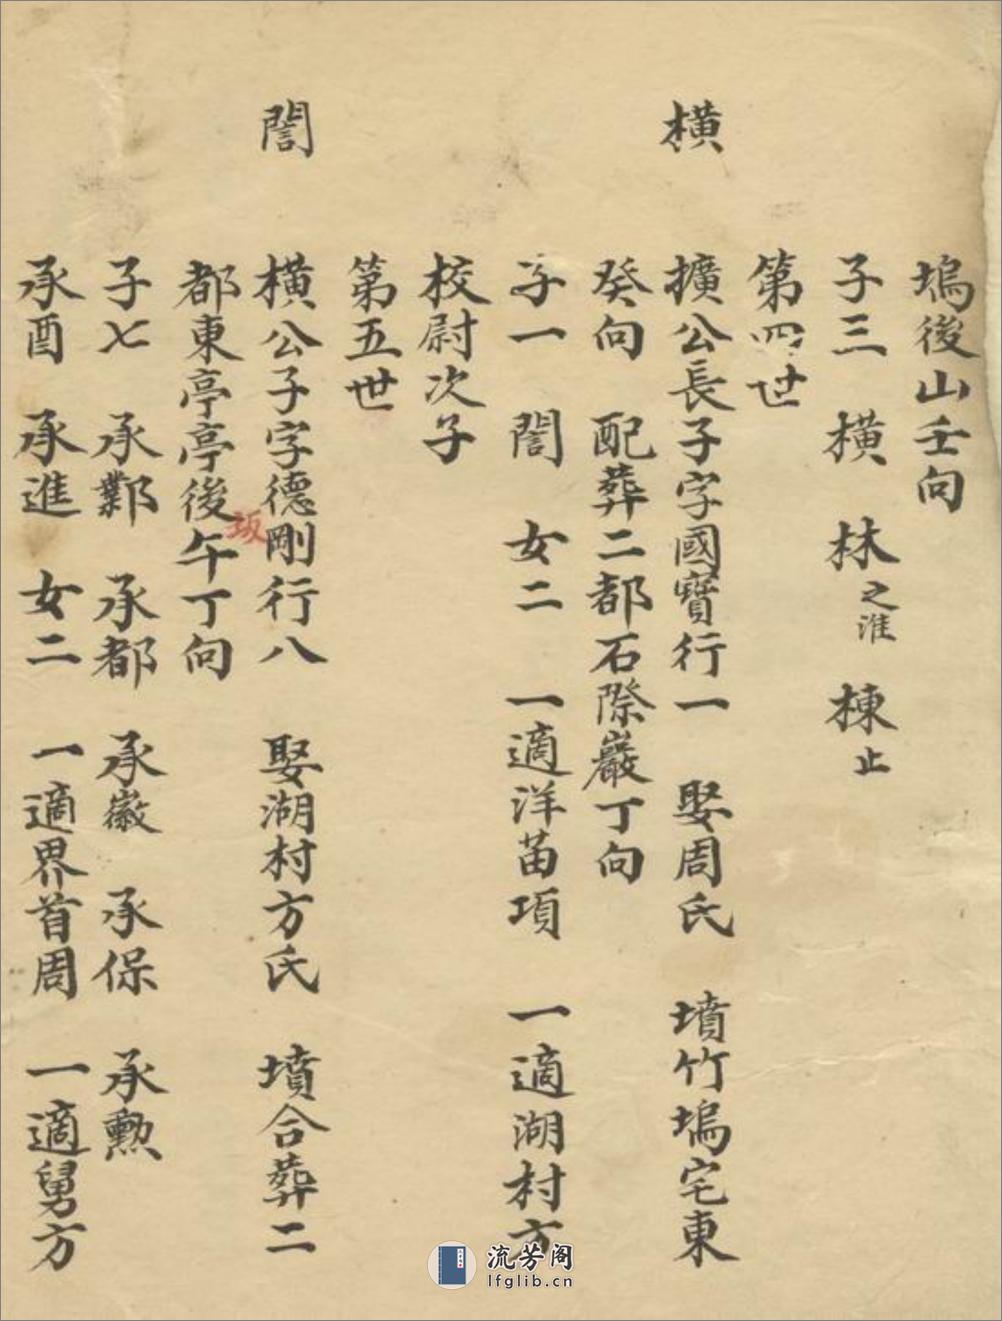 塢後山壬向
子三 橫 林之淮 棟止
第四世
橫
擴公長子字國寶行一 娶周氏 墳竹塢宅東
癸向 配葬二都石際巖丁向
子一 誾 女二 一適洋苗項 一適湖村方
校尉次子
第五世
誾
橫公子字德剛行八 娶湖村方氏 墳合葬二
坂
都東亭亭後午丁向
子七 承鄴 承都 承徽 承保 承勲
承酉 承進 女二 一適界首周 一適舅方
流芳阁
lfglib.cn